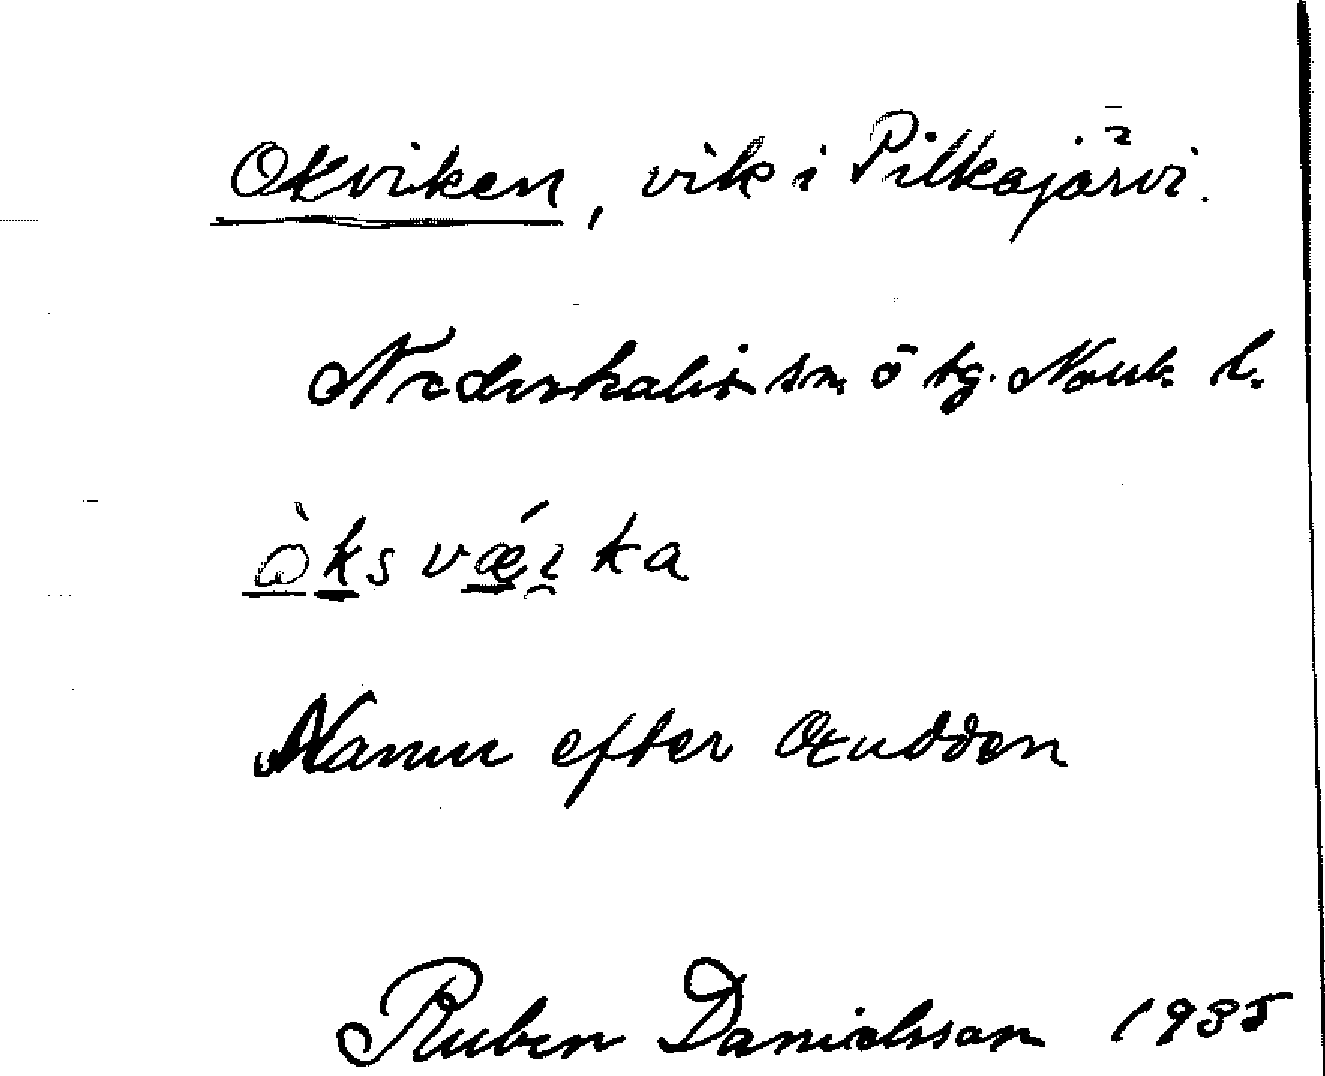 Okviken, vik i Pilkajärvi.
Nederkalix sn. ö tg. Norrb. l.
òksvǽika
Namn efter Oxudden
Ruben Danielsson 1935